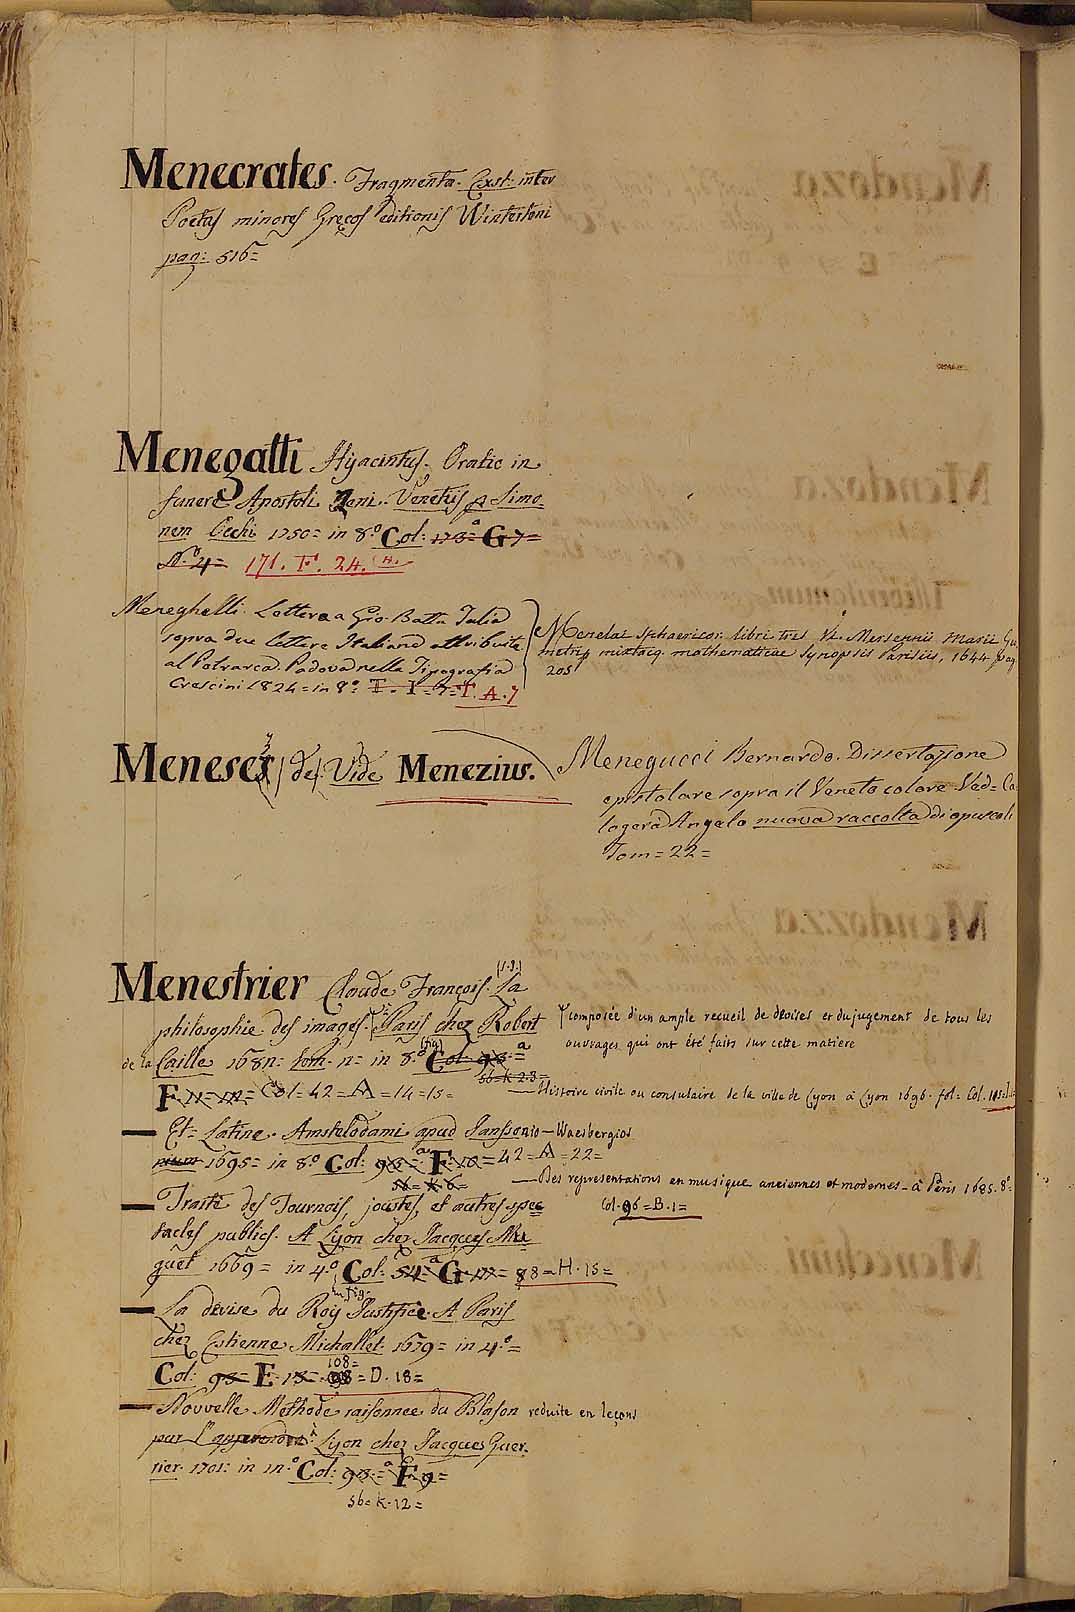 Menecrates. Fragmenta. Exst: inter
Poetas minores Grecos editionis Wintertoni
pag: 516=
Menegatti Hyacintus. Oratio in
funere Apostoli Zeni. Venetiis Simo-
nem Occhi 1750= in 8.º Col: 173.ª G 7=
N.º 4= 171. F. 24.
Meneghelli. Lettera a Gio. Batta Talia
sopra due lettere Italiane attribuite
al Petrarca. Padova nella Tipografia
Crescini 1824= in 8º T. A. 7
Menelai Sphaericor. libri tres Vt. Mersennii Marii
mixtaeq. mathematicae Synopsis Parisiis, 1644. pag
205
Meneses (de) Vide Menezius.
Menegucci Bernardo. Dissertazione
epistolare sopra il Veneto colore. Ved= Ca-
logerà Angelo nuova raccolta di opuscoli
Tom= 22=
Menestrier Claude François. (s.J.) La
philosophie des images. Paris chez Robert
de la Caille 1682: tom. 2= in 8.º (fig) Col: 93=ª
56=K 23=
F. 11= 12= Col=42=A=14=15=
composée d'un ample recueil de devises et du jugement de tous les
ouvrages qui ont été faits sur cette matiere
— Histoire civile ou consulaire de la ville de Lyon à Lyon 1696. fol= Col.
— Et Latine. Amstelodami apud Janssonio-Waesbergios
1695= in 8.º Col: 93=ª F. 10= 42=A=22=
56=K.6=
— Des representations en musique anciennes et modernes - à Paris 1685. 8º=
Col. 96=B.1=
— Traité des Tournois, joustes, et autres spec-
tacles publics. A Lyon chez Jacques Mu-
guet 1669= in 4.º Col: 54=ª G. 17= 88=H.15=
in fig.
— La devise du Roy Justifiée. A Paris
chez Estienne Michallet. 1679= in 4.º=
108=
Col: 93= E. 13= 98=D.18=
— Nouvelle Methode raisonnée du Blason reduite en leçons
par l'apprendre à Lyon chez Jacques Guer-
rier. 1701: in 12.º Col: 93=ª F 9=
56=K.12=